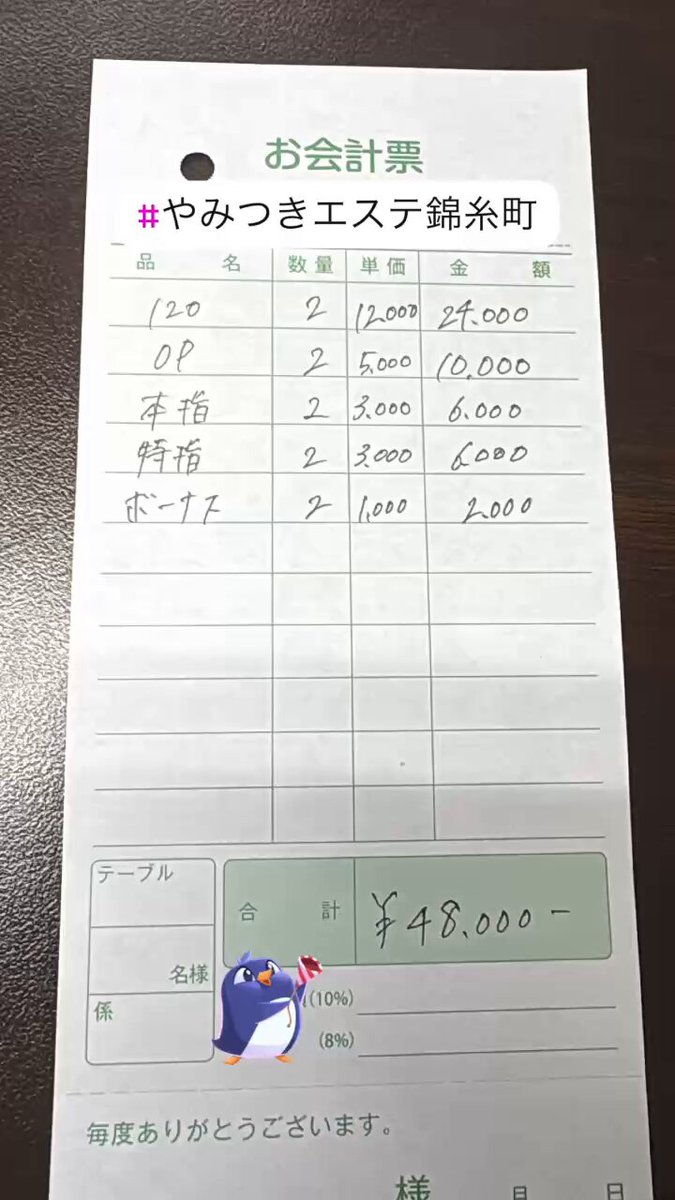 お会計票
#やみつきエステ錦糸町
品名 数量 単価 金額
120 2 12.000 24.000
OP 2 5.000 10.000
本指 2 3.000 6.000
特指 2 3.000 6.000
ボーナス 2 1.000 2.000
テーブル
名様
係
合計 ¥48.000-
(10%)
(8%)
毎度ありがとうございます。
様 月 日